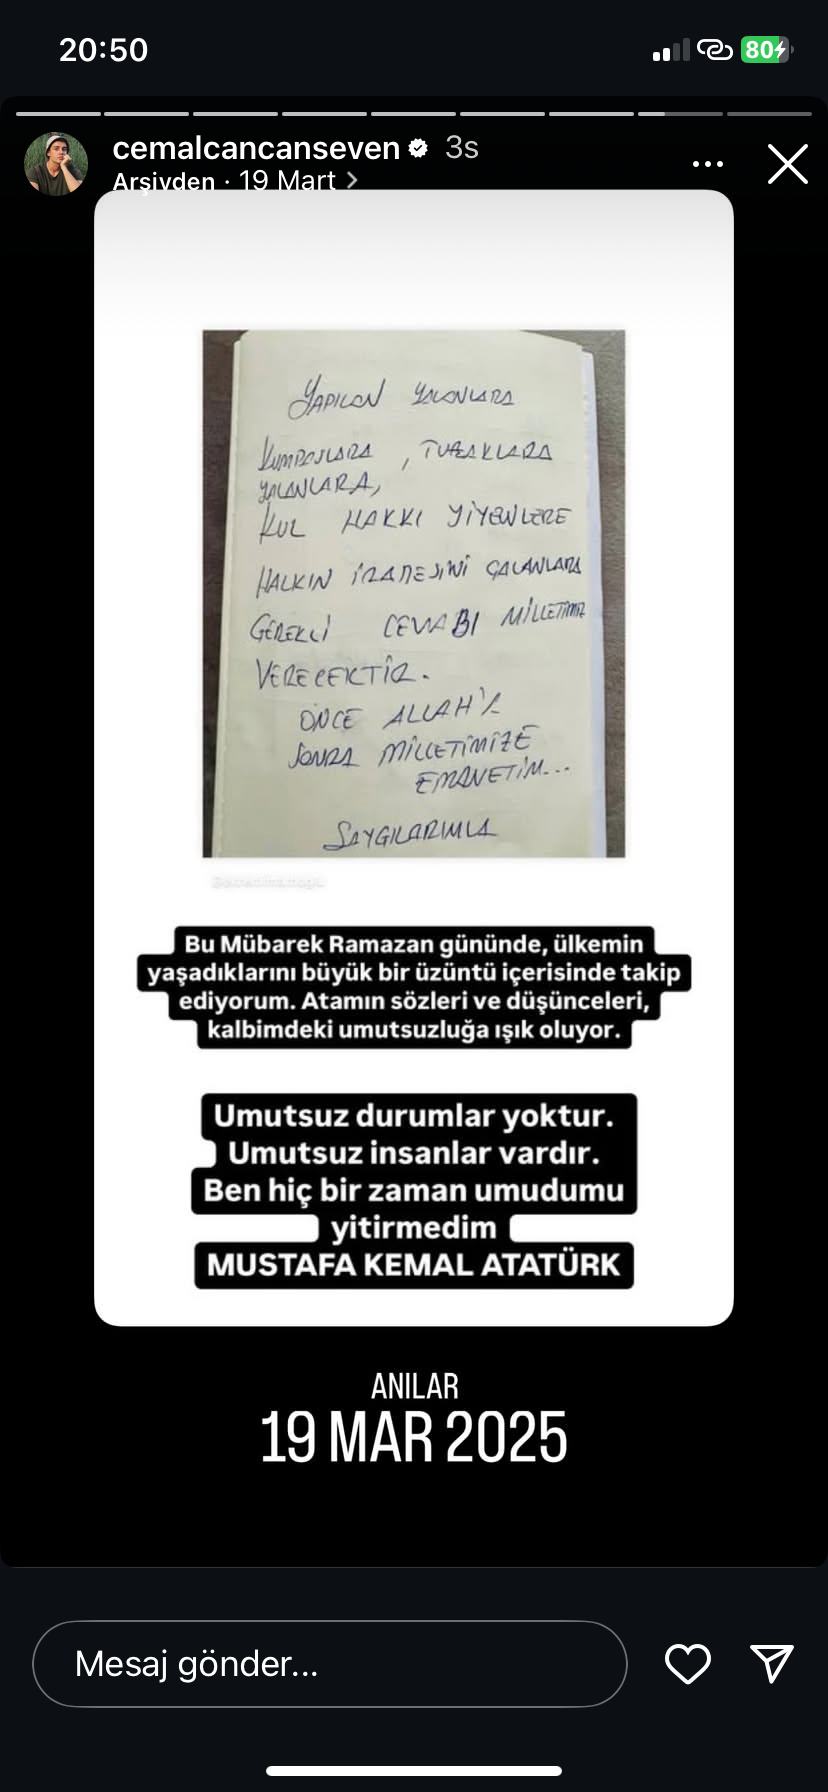 20:50
80
cemalcancanseven 3s
Arşivden · 19 Mart >
YAPILAN YALANLARA
KUMPASLARA, TUZAKLARA
YALANLARA,
KUL HAKKI YİYENLERE
HALKIN İRADESİNİ ÇALANLARA
GEREKLİ CEVABI MİLLETİMİZ
VERECEKTİR.
ÖNCE ALLAH'A
SONRA MİLLETİMİZE
EMANETİM...
SAYGILARIMLA
@ekremimamoglu
Bu Mübarek Ramazan gününde, ülkemin
yaşadıklarını büyük bir üzüntü içerisinde takip
ediyorum. Atamın sözleri ve düşünceleri,
kalbimdeki umutsuzluğa ışık oluyor.
Umutsuz durumlar yoktur.
Umutsuz insanlar vardır.
Ben hiç bir zaman umudumu
yitirmedim
MUSTAFA KEMAL ATATÜRK
ANILAR
19 MAR 2025
Mesaj gönder...